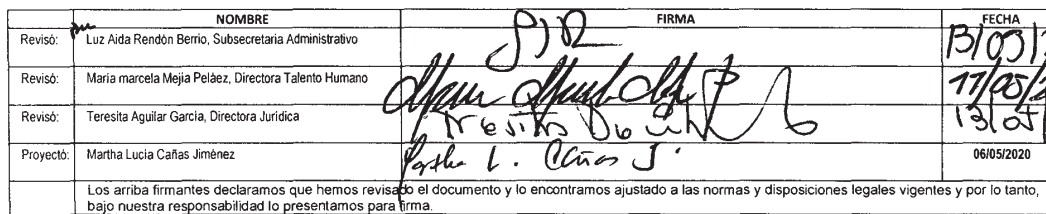 NOMBRE FIRMA FECHA
Revisó: Luz Aida Rendón Berrio, Subsecretaria Administrativo 13/05/
Revisó: Maria marcela Mejia Peláez, Directora Talento Humano 11/05/2
Revisó: Teresita Aguilar García, Directora Jurídica 13/05/
Proyectó: Martha Lucia Cañas Jiménez Martha L. Cañas J. 06/05/2020
Los arriba firmantes declaramos que hemos revisado el documento y lo encontramos ajustado a las normas y disposiciones legales vigentes y por lo tanto,
bajo nuestra responsabilidad lo presentamos para firma.